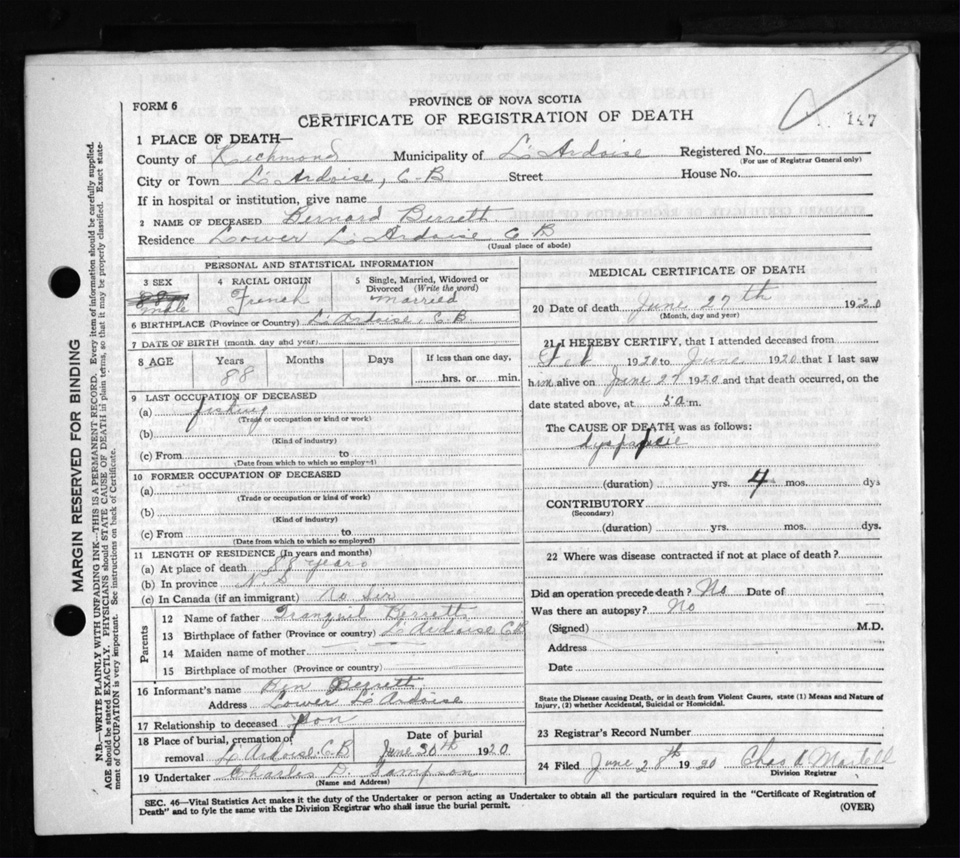 FORM 6
PROVINCE OF NOVA SCOTIA
CERTIFICATE OF REGISTRATION OF DEATH
147
1 PLACE OF DEATH—
County of Richmond Municipality of L'Ardoise Registered No.
(For use of Registrar General only)
City or Town L'Ardoise, C.B Street House No.
If in hospital or institution, give name
2 NAME OF DECEASED Bernard Berrett
Residence Lower L'Ardoise C B
(Usual place of abode)
PERSONAL AND STATISTICAL INFORMATION
3 SEX 4 RACIAL ORIGIN 5 Single, Married, Widowed or Divorced (Write the word)
male French married
6 BIRTHPLACE (Province or Country) L'Ardoise, C.B.
7 DATE OF BIRTH (month, day and year)
8 AGE Years Months Days If less than one day,
88 hrs. or min.
9 LAST OCCUPATION OF DECEASED
(a) fishing
(Trade or occupation or kind or work)
(b)
(Kind of industry)
(c) From to
(Date from which to which so employed)
10 FORMER OCCUPATION OF DECEASED
(a)
(Trade or occupation or kind of work)
(b)
(Kind of industry)
(c) From to
(Date from which to which so employed)
11 LENGTH OF RESIDENCE (In years and months)
(a) At place of death 88 years
(b) In province N.S
(c) In Canada (if an immigrant) No Sir
Parents
12 Name of father Berrett
13 Birthplace of father (Province or country) L'Ardoise C B
14 Maiden name of mother
15 Birthplace of mother (Province or country)
16 Informant's name Ben Berrett
Address Lower L'Ardoise
17 Relationship to deceased Son
18 Place of burial, cremation or removal Date of burial
L'Ardoise C B June 30th 1920
19 Undertaker Charles P. Sampson
(Name and Address)
MEDICAL CERTIFICATE OF DEATH
20 Date of death June 27th 1920
(Month, day and year)
21 I HEREBY CERTIFY, that I attended deceased from
Feb 1920 to June 1920 that I last saw
him alive on June 27 1920 and that death occurred, on the
date stated above, at 5 a m.
The CAUSE OF DEATH was as follows:
(duration) yrs. 4 mos. dys
CONTRIBUTORY
(Secondary)
(duration) yrs. mos. dys.
22 Where was disease contracted if not at place of death?
Did an operation precede death? No Date of
Was there an autopsy? No
(Signed) M.D.
Address
Date
State the Disease causing Death, or in death from Violent Causes, state (1) Means and Nature of
Injury, (2) whether Accidental, Suicidal or Homicidal.
23 Registrar's Record Number
24 Filed June 28th 1920 Chas
Division Registrar
SEC. 46—Vital Statistics Act makes it the duty of the Undertaker or person acting as Undertaker to obtain all the particulars required in the "Certificate of Registration of
Death" and to fyle the same with the Division Registrar who shall issue the burial permit.
(OVER)
MARGIN RESERVED FOR BINDING
N.B.—WRITE PLAINLY WITH UNFADING INK—THIS IS A PERMANENT RECORD. Every item of information should be carefully supplied.
AGE should be stated EXACTLY. PHYSICIANS should STATE CAUSE OF DEATH in plain terms, so that it may be properly classified. Exact state-
ment of OCCUPATION is very important. See instructions on back of Certificate.